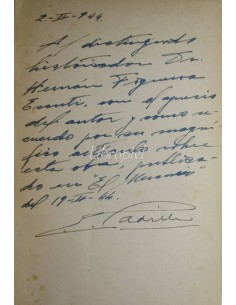 2-IV-944.
Al distinguido
historiador Dr.
Hernán Figueroa
con el aprecio
del autor y como re-
cuerdo por su magní-
fico artículo sobre
esta obra, publica-
do en "El
del 19-III-44.
E. Padilla
Libropia